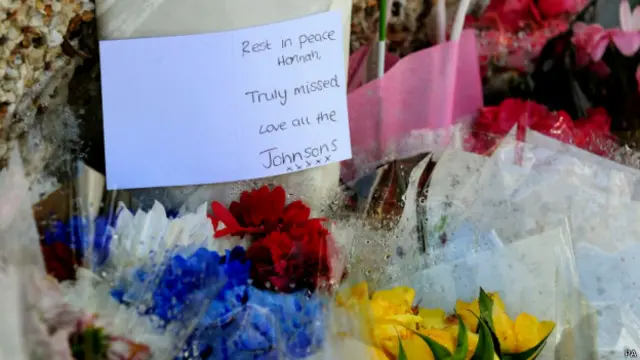 Rest in peace
Hannah,
Truly missed
Love all the
Johnsons
xxxxx
PA